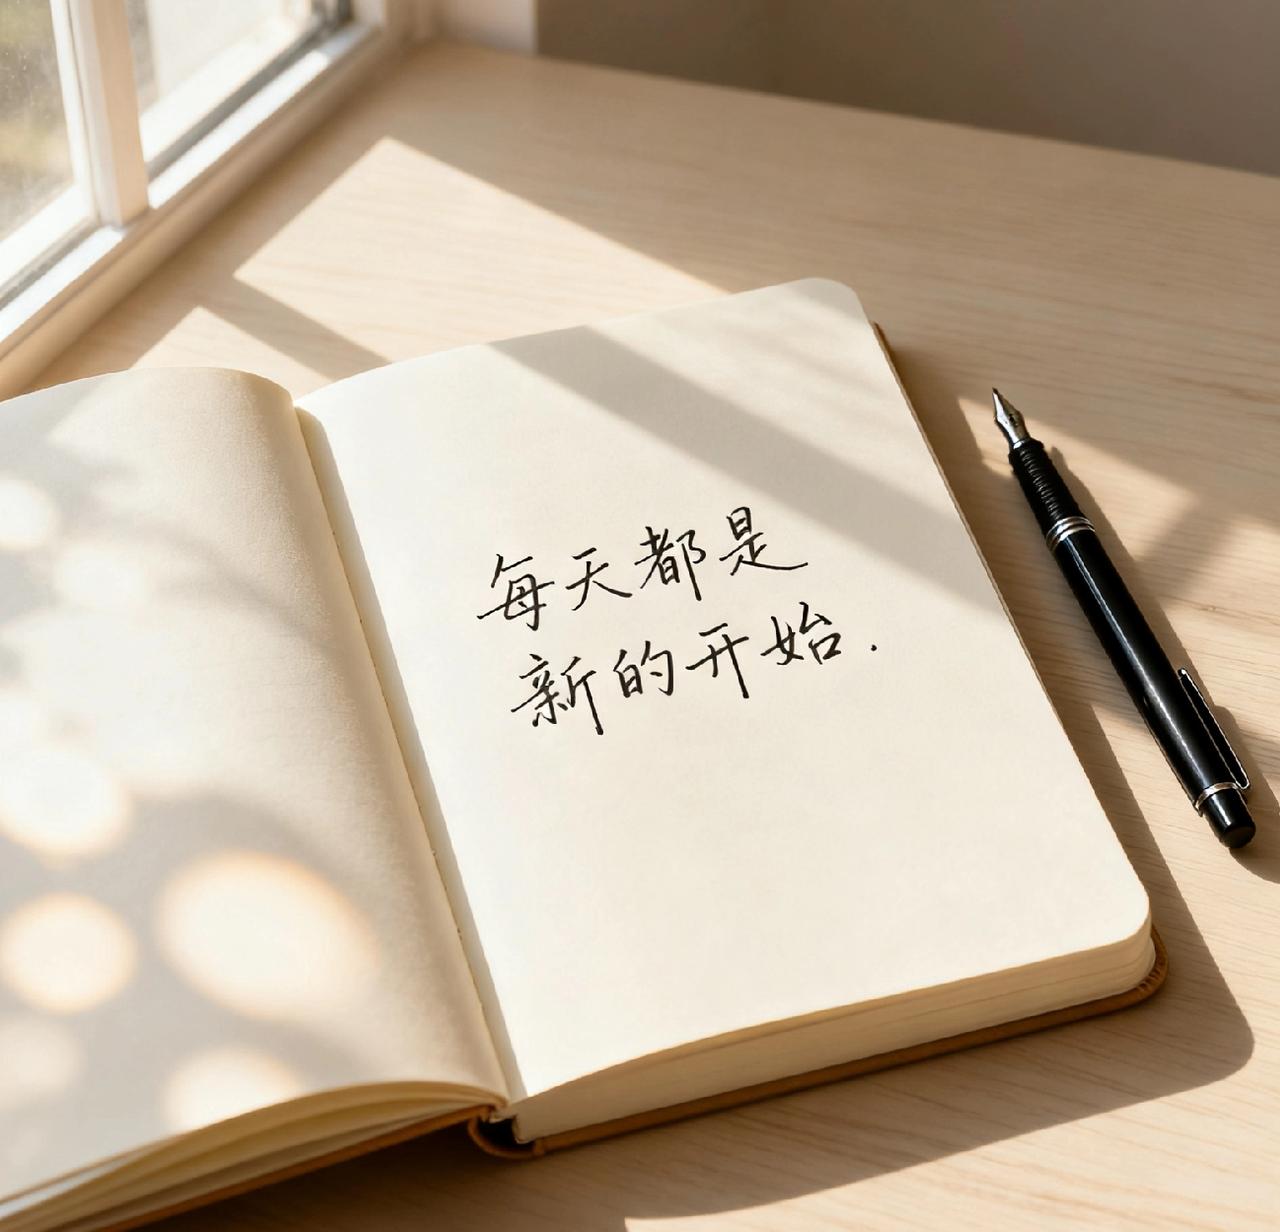 每天都是
新的开始.